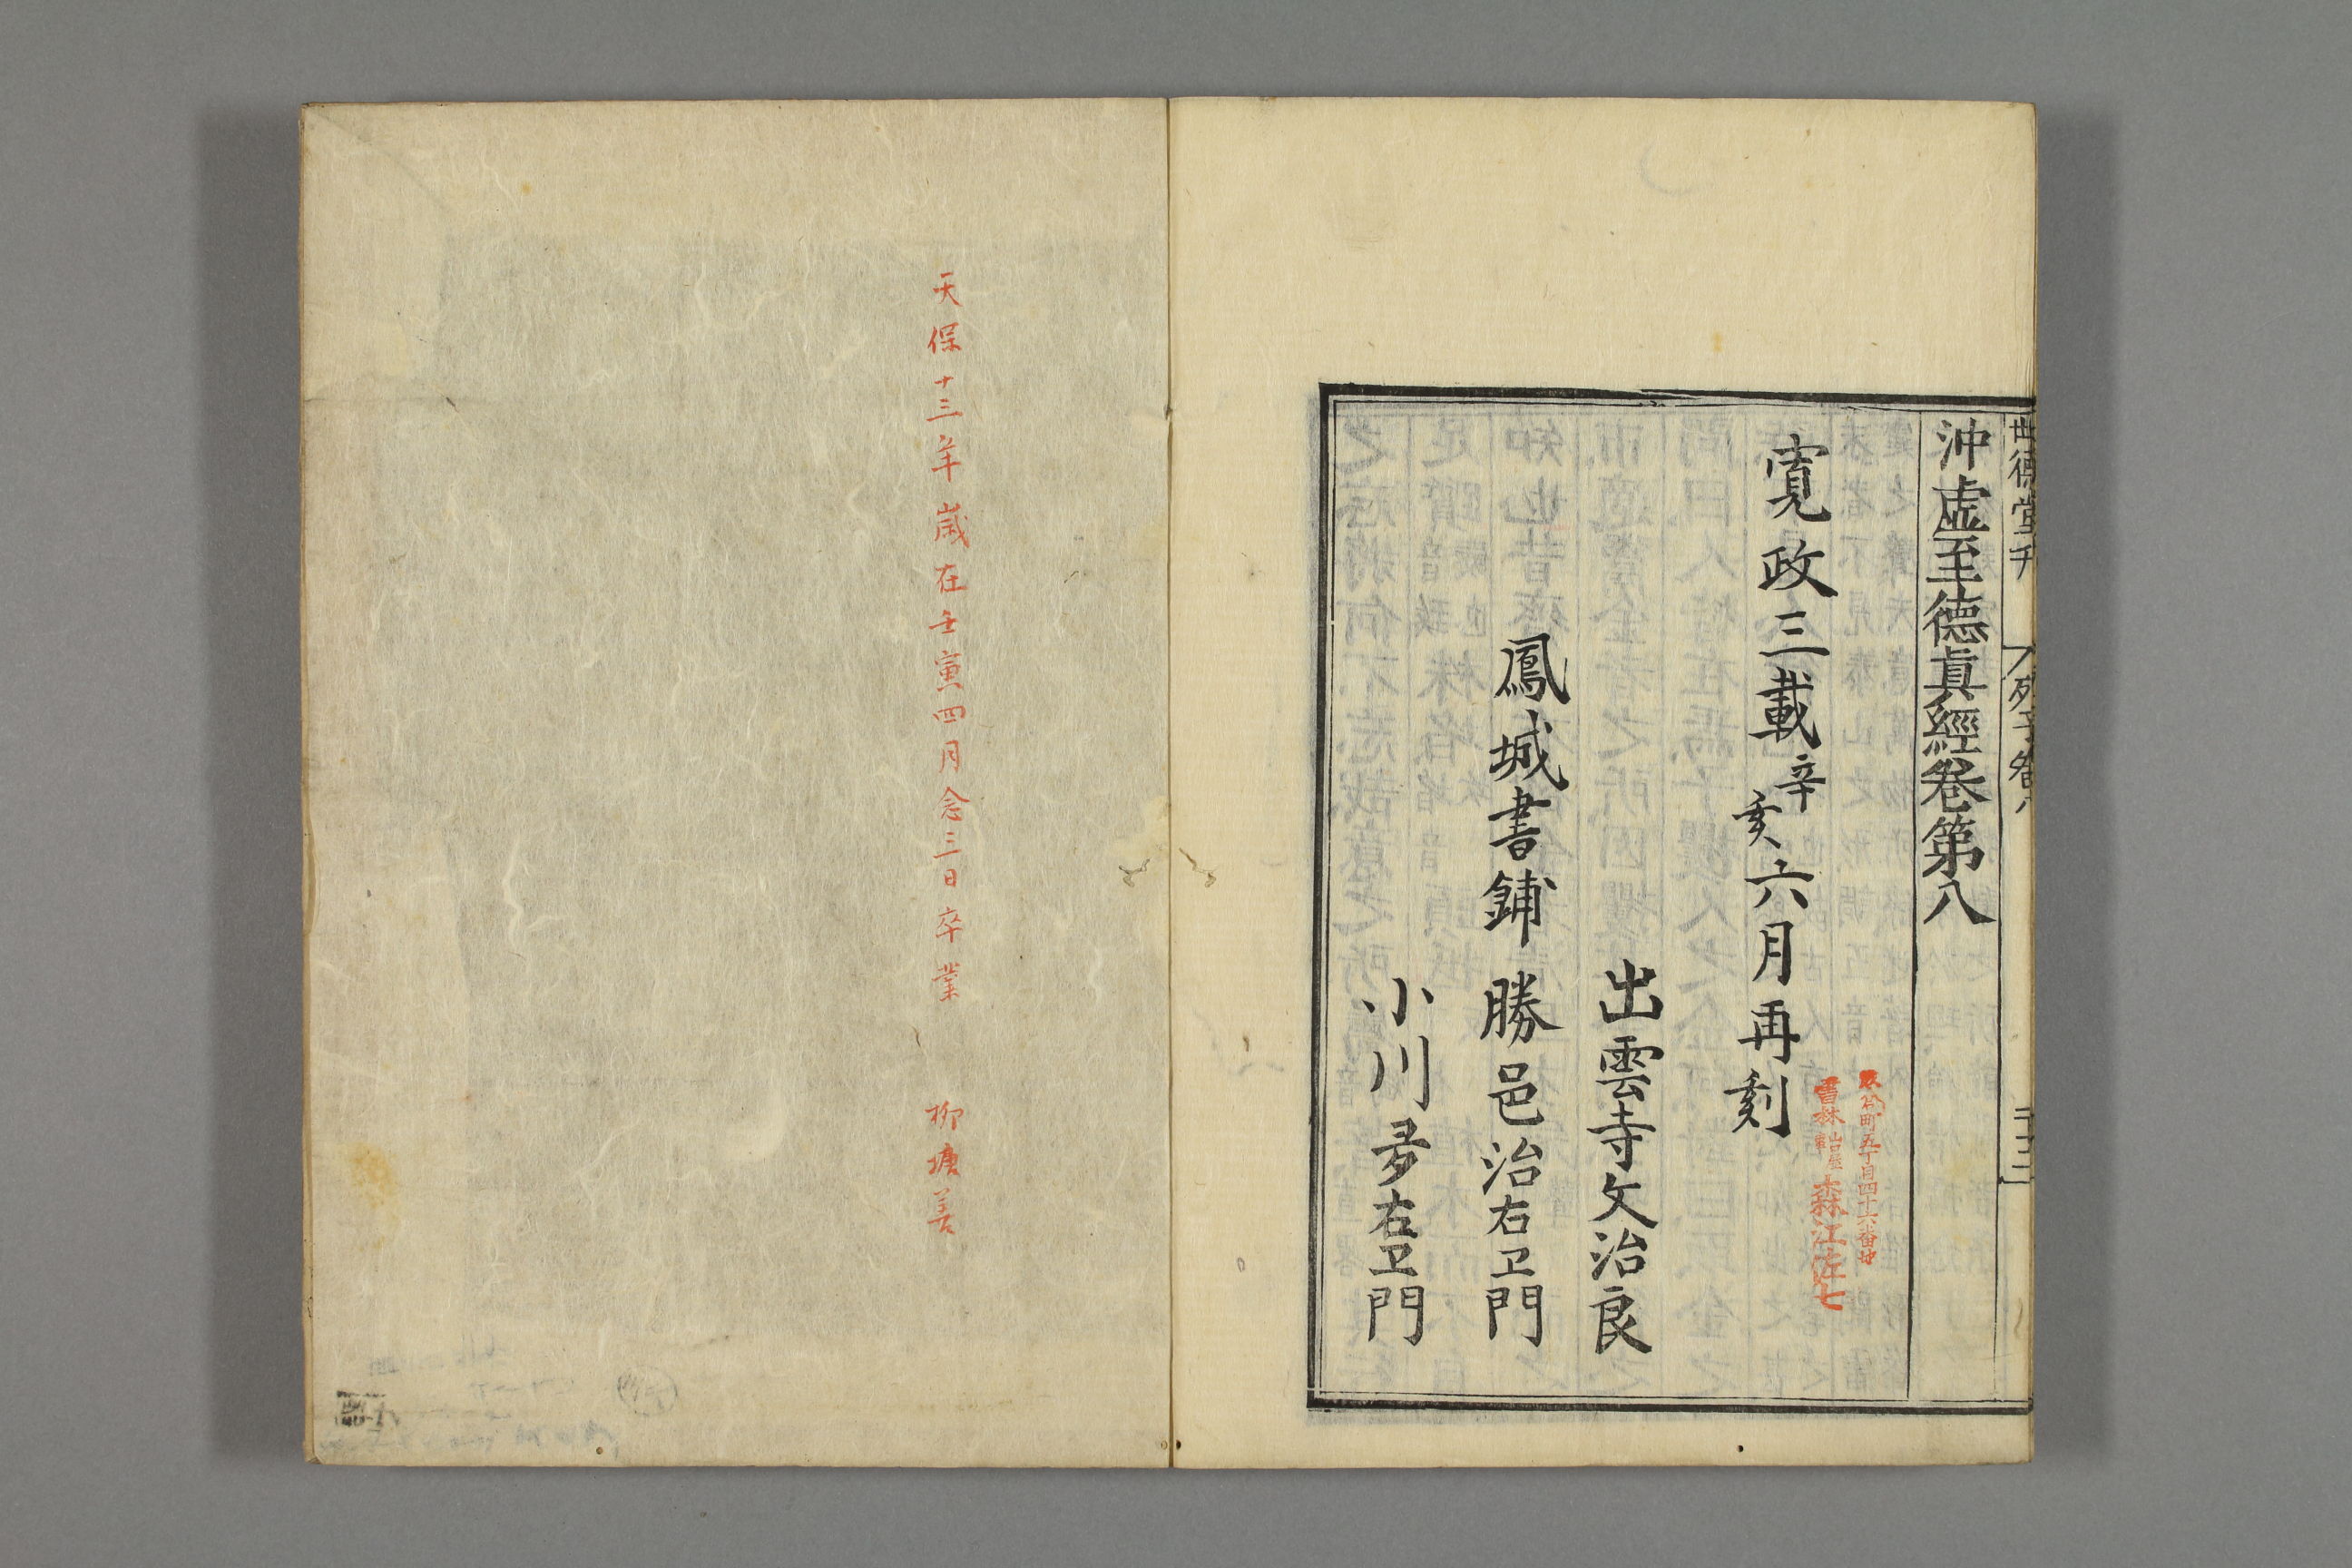 世德堂刊 列子卷八 二十三
沖虛至德眞經卷第八
寬政三載辛亥六月再刻
町五丁目四十六番地
書林 森江佐七
出雲寺文治良
鳳城書鋪 勝邑治右卫門
小川多右卫門
天保十三年歲在壬寅四月念三日卒業 柳塘善